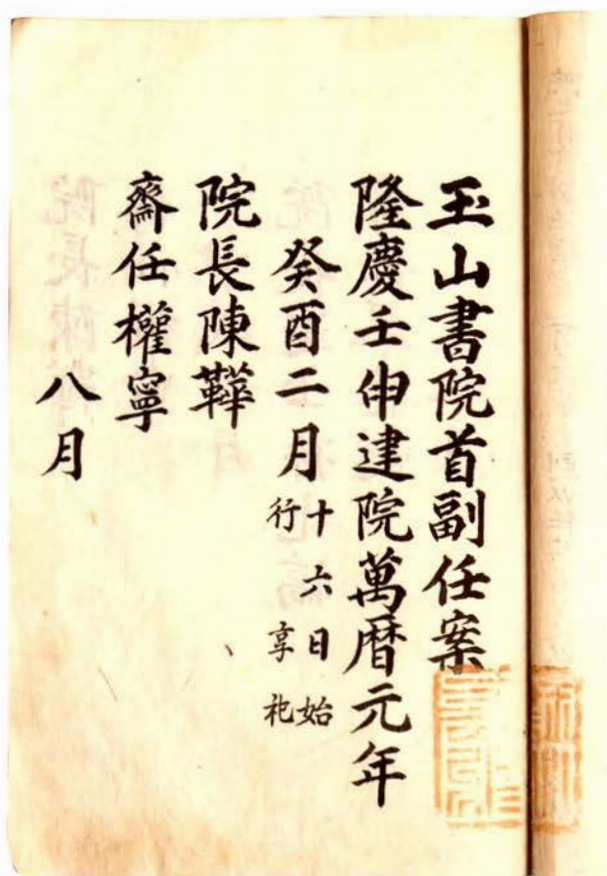 玉山書院首副任案
隆慶壬申建院萬曆元年
癸酉二月
十六日始
行享祀
院長陳
齋任權寧
八月